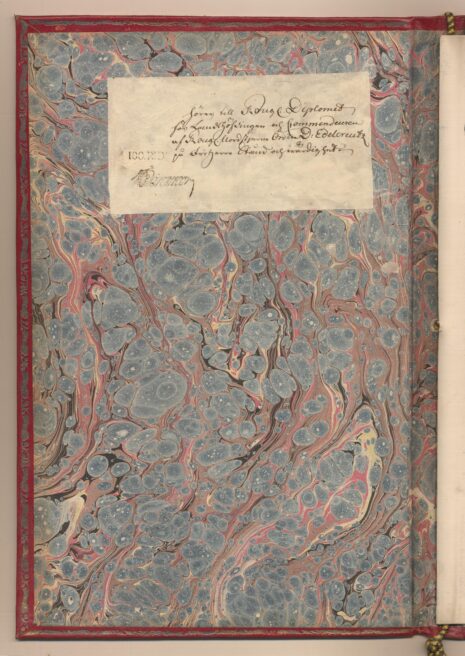 hörer till Kongl. Diplomet
för Landshöfdingen och Commendeuren
af Kongl. Nordstjerne Orden D. Edelcreutz
på Friherre Stånd och värdighet